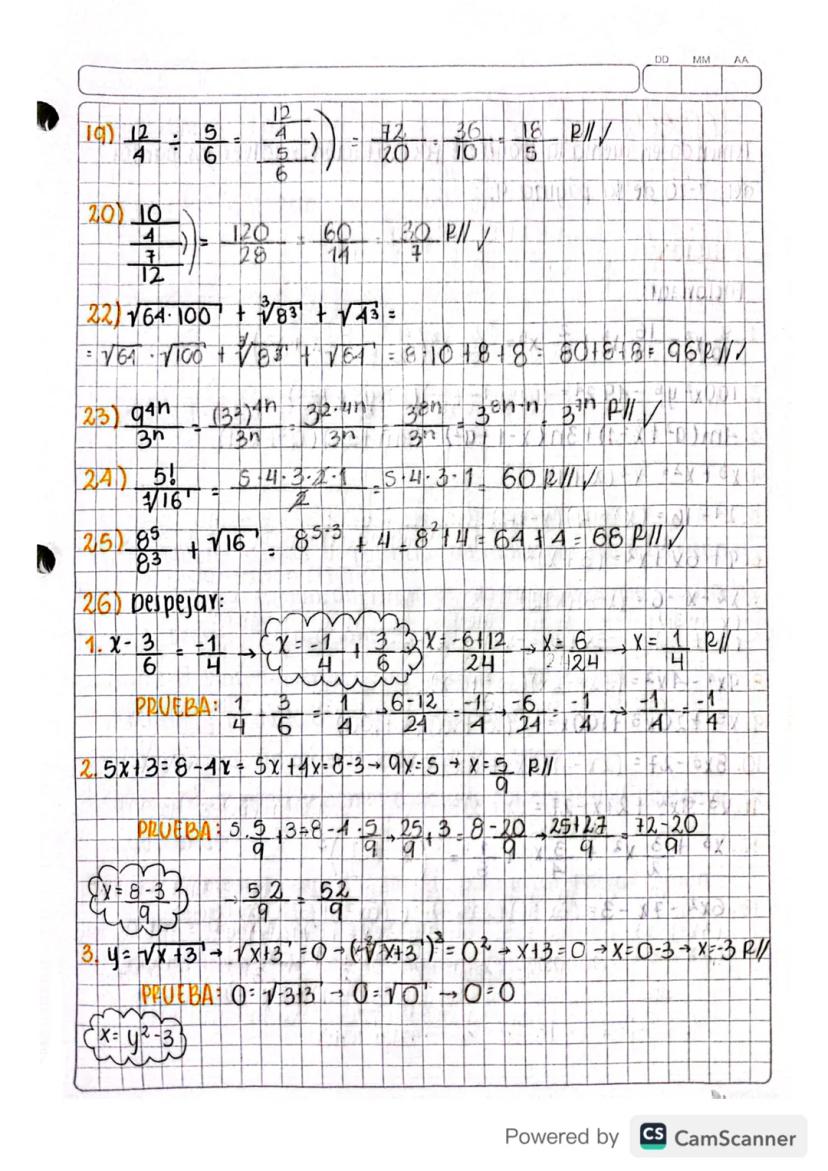 DD MM AA
19) 12/4 ÷ 5/6 = 12/4 / 5/6 = 72/20 = 36/10 = 18/5 R// ✓
20) 10/4 / 7/12 = 120/28 = 60/14 = 30/7 R// ✓
22) √64·100 + ³√8³ + √4³ =
= √64 · √100 + ³√8³ + √64 = 8·10+8+8 = 80+8+8 = 96 R// ✓
23) 9⁴ⁿ/3ⁿ = (3²)⁴ⁿ/3ⁿ = 3²·⁴ⁿ/3ⁿ = 3⁸ⁿ/3ⁿ = 3⁸ⁿ⁻ⁿ = 3⁷ⁿ R// ✓
24) 5!/⁴√16 = 5·4·3·2·1/2 = 5·4·3·1 = 60 R// ✓
25) 8⁵/8³ + √16 = 8⁵⁻³ + 4 = 8²+4 = 64+4 = 68 R// ✓
26) Despejar:
1. x - 3/6 = -1/4 → x = -1/4 + 3/6 x = -6+12/24 → x = 6/24 → x = 1/4 R//
PRUEBA: 1/4 - 3/6 = -1/4 → 6-12/24 = -1/4 → -6/24 = -1/4 → -1/4 = -1/4
2. 5x+3=8-4x = 5x+4x=8-3 → 9x=5 → x=5/9 R//
PRUEBA: 5·5/9+3=8-4·5/9 → 25/9+3=8-20/9 → 25+27/9 = 72-20/9
x = 8-3/9 → 52/9 = 52/9
3. y=√x+3 → √x+3 = 0 → (²√x+3)² = 0² → x+3=0 → x=0-3 → x=-3 R//
PRUEBA: 0=√-3+3 → 0=√0 → 0=0
x= y²-3
Powered by CS CamScanner